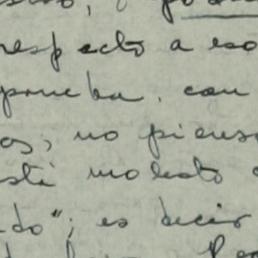 respecto a eso
prueba. con
os, no piens
sti molesto
do"; es decir